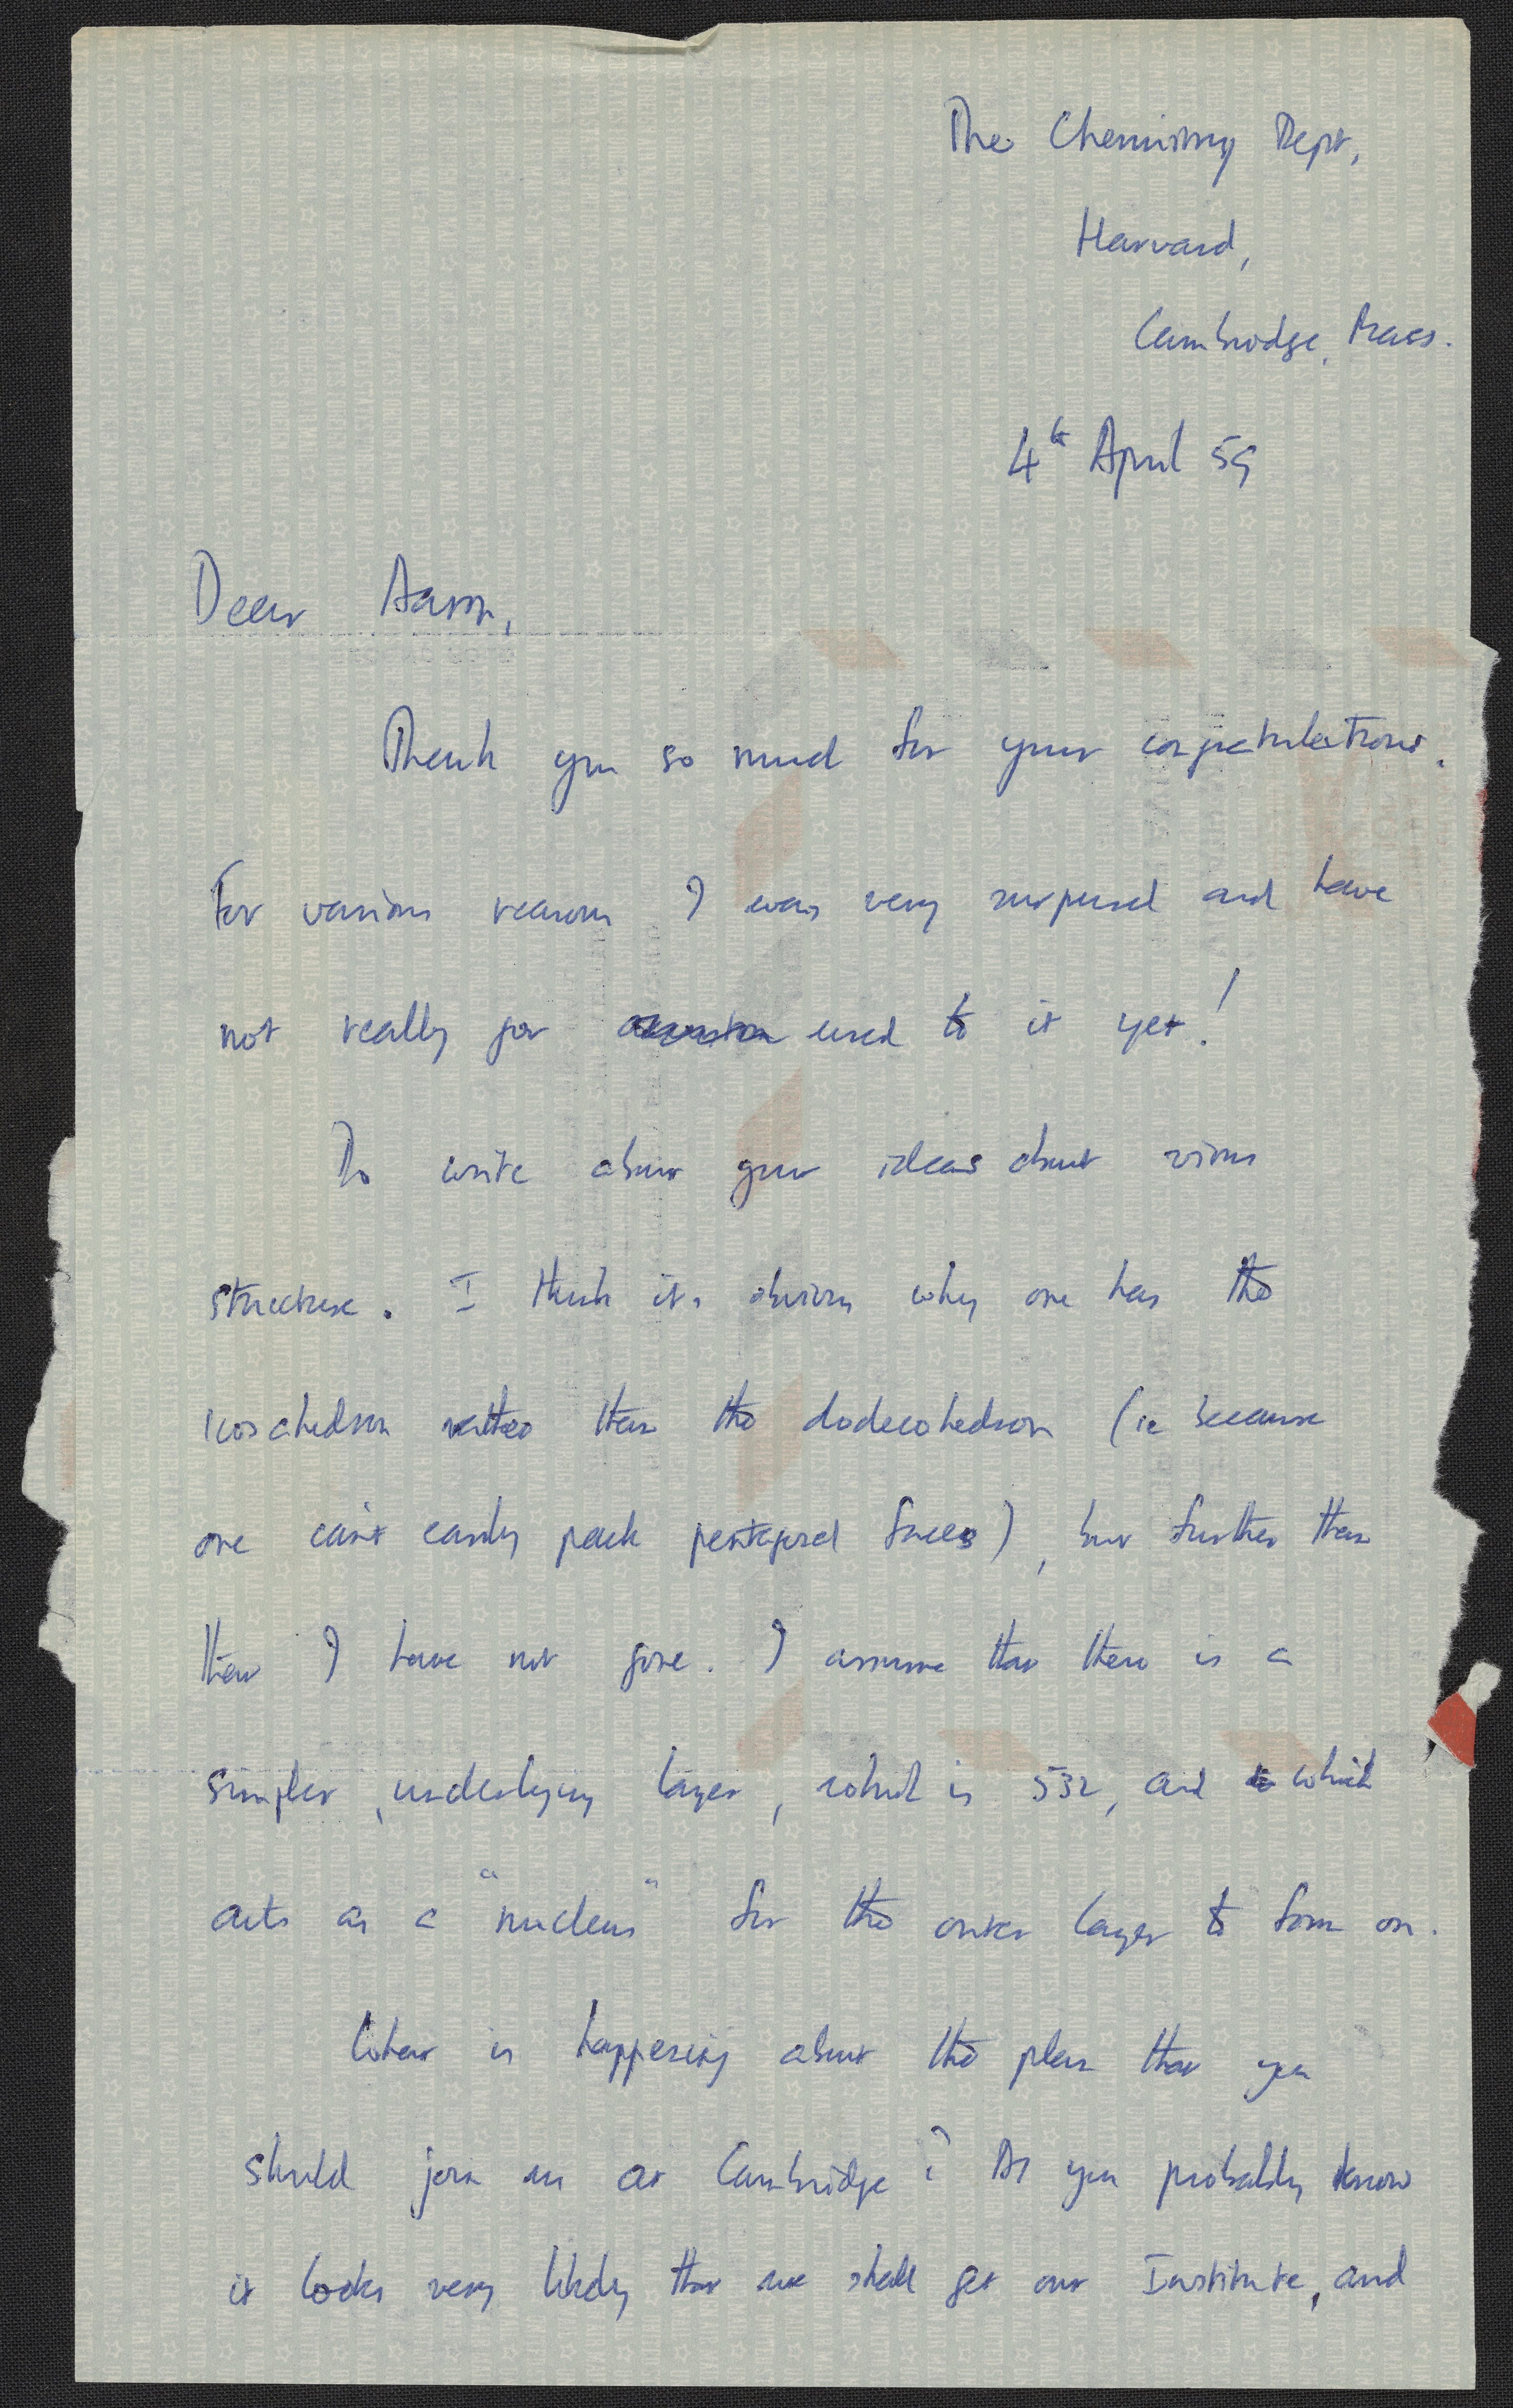 The Chemistry Dept,
Harvard,
Cambridge, Mass.
4th April 59
Dear Aaron,
Thank you so much for your congratulations.
For various reasons I was very surprised and have
not really got used to it yet!
Do write about your ideas about virus
structure. I think it's obvious why one has the
icosahedron rather than the dodecohedron (ie because
one can't easily pack pentagonal faces), but further than
that I have not gone. I assume that there is a
simpler, underlying layer, which is 532, and which
acts as a "nucleus" for the outer layer to form on.
What is happening about the plan that you
should join us at Cambridge? As you probably know
it looks very likely that we shall get our Institute, and